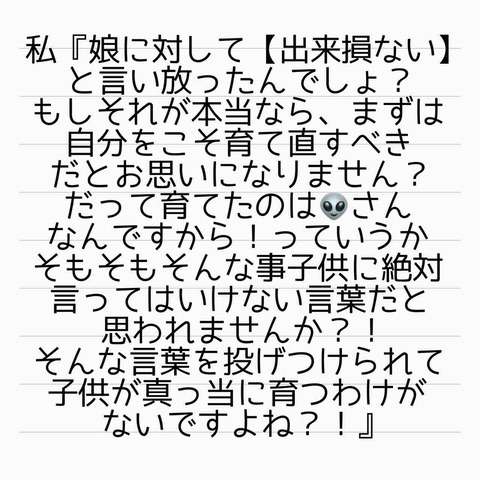 私『娘に対して【出来損ない】
と言い放ったんでしょ？
もしそれが本当なら、まずは
自分をこそ育て直すべき
だとお思いになりません？
だって育てたのは👽さん
なんですから！っていうか
そもそもそんな事子供に絶対
言ってはいけない言葉だと
思われませんか？！
そんな言葉を投げつけられて
子供が真っ当に育つわけが
ないですよね？！』